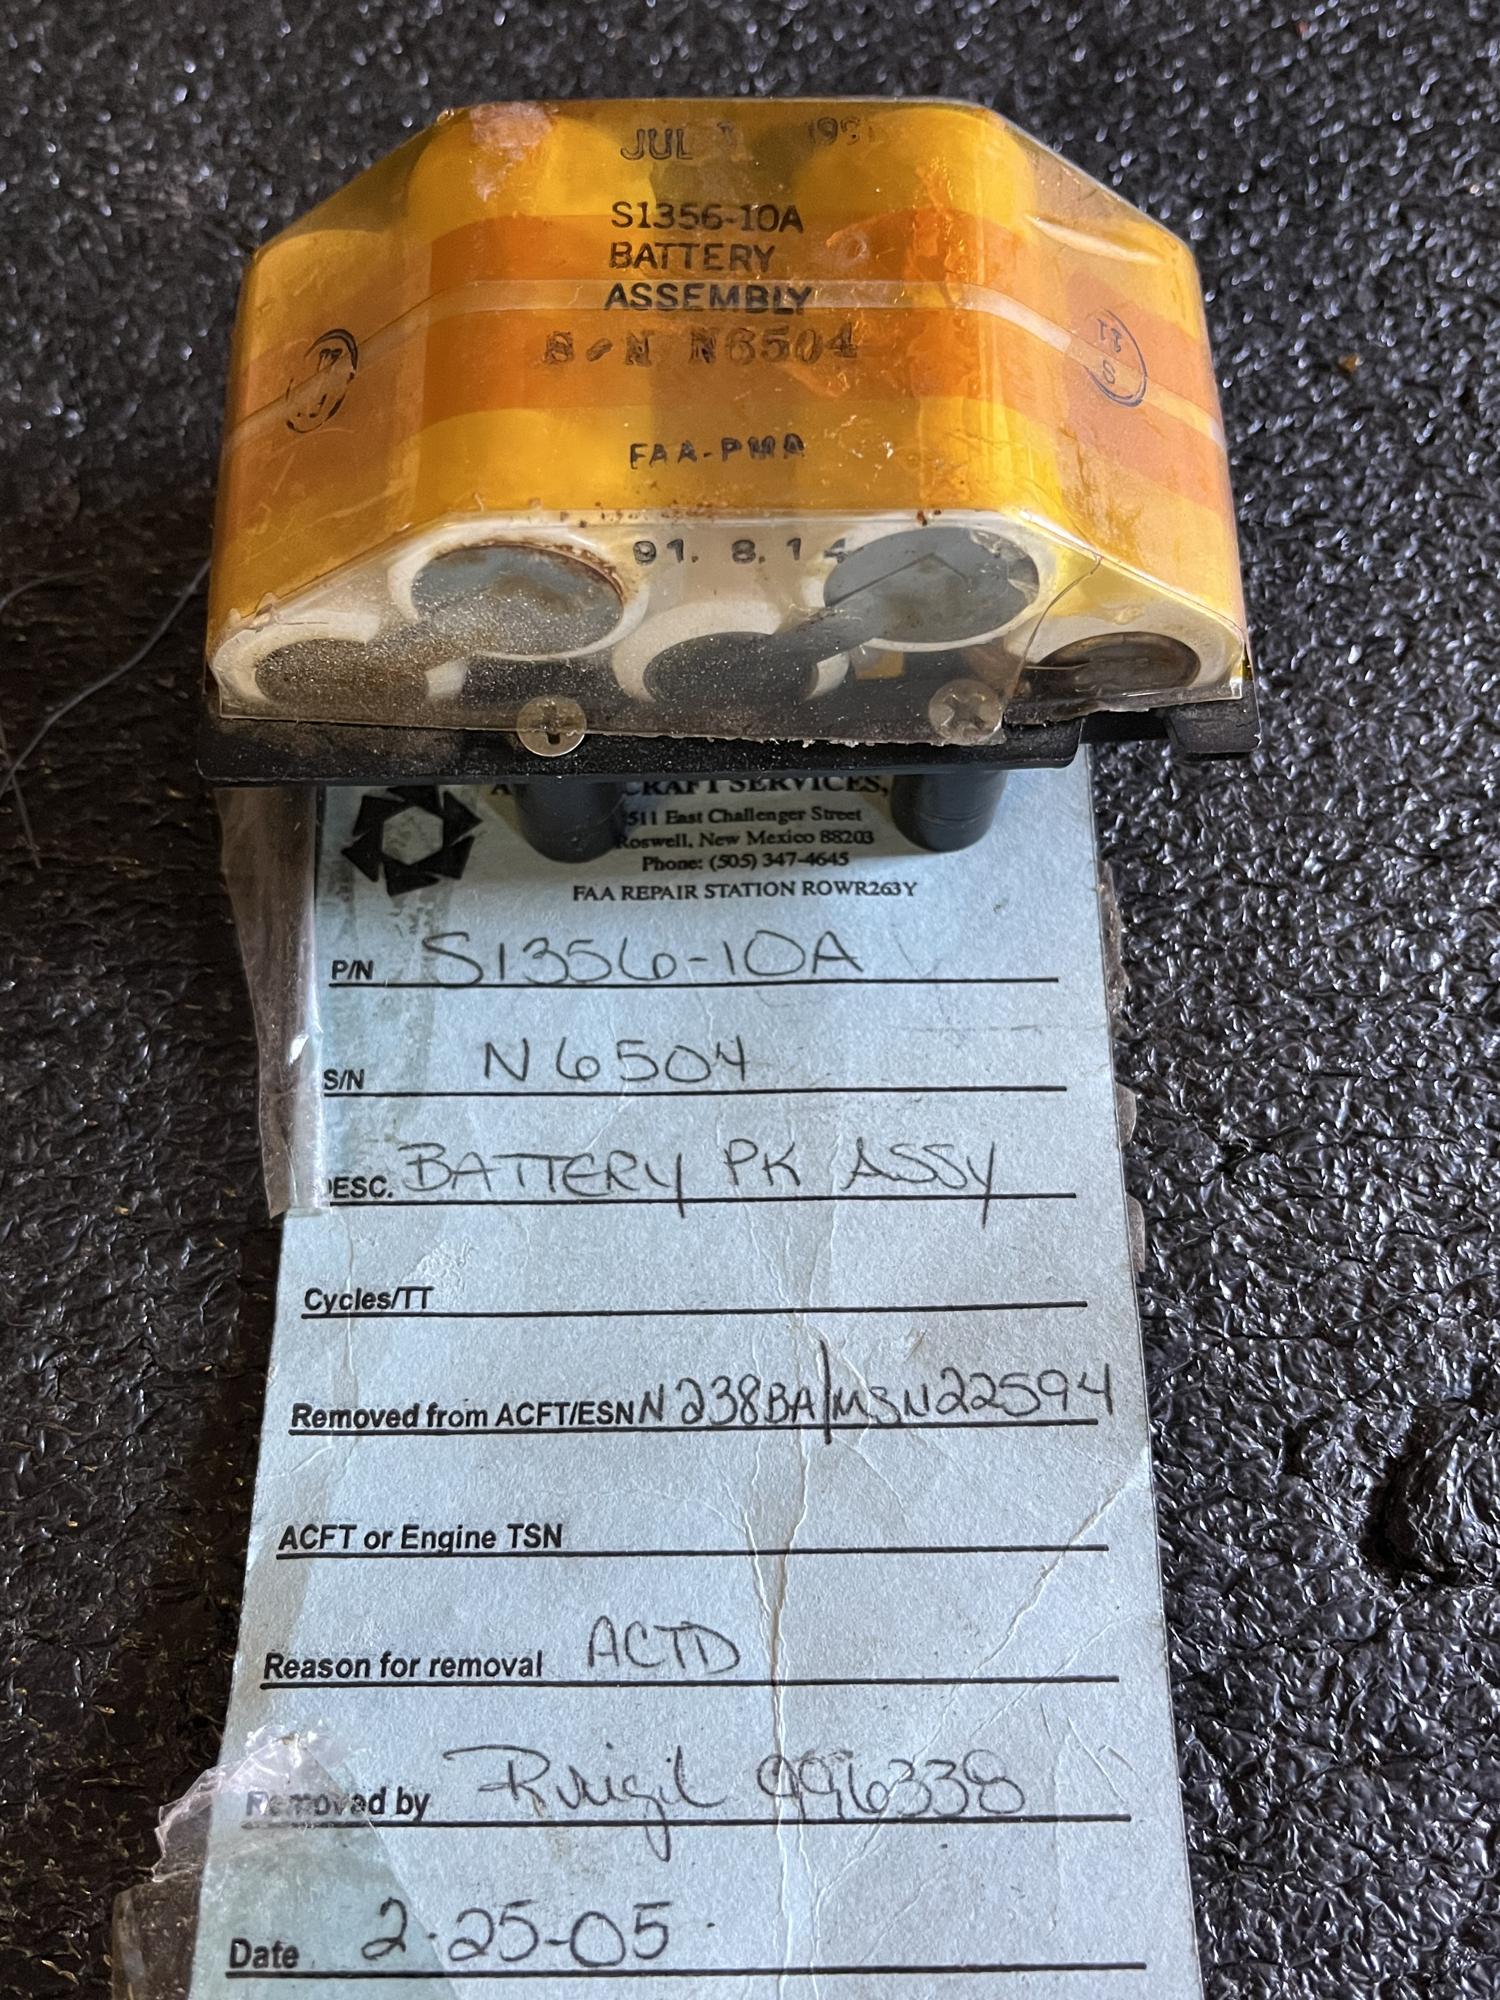 JUL 199
S1356-10A
BATTERY
ASSEMBLY
S/N N6504
FAA-PMA
91. 8. 14
CRAFT SERVICES,
511 East Challenger Street
Roswell, New Mexico 88203
Phone: (505) 347-4645
FAA REPAIR STATION ROWR263Y
P/N S1356-10A
S/N N6504
DESC. BATTERY PK ASSY
Cycles/TT
Removed from ACFT/ESN N238BA/MSN22594
ACFT or Engine TSN
Reason for removal ACTD
Removed by 996338
Date 2-25-05